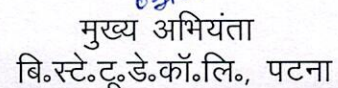 मुख्य अभियंता
बि॰स्टे॰टू॰डे॰कॉ॰लि॰, पटना